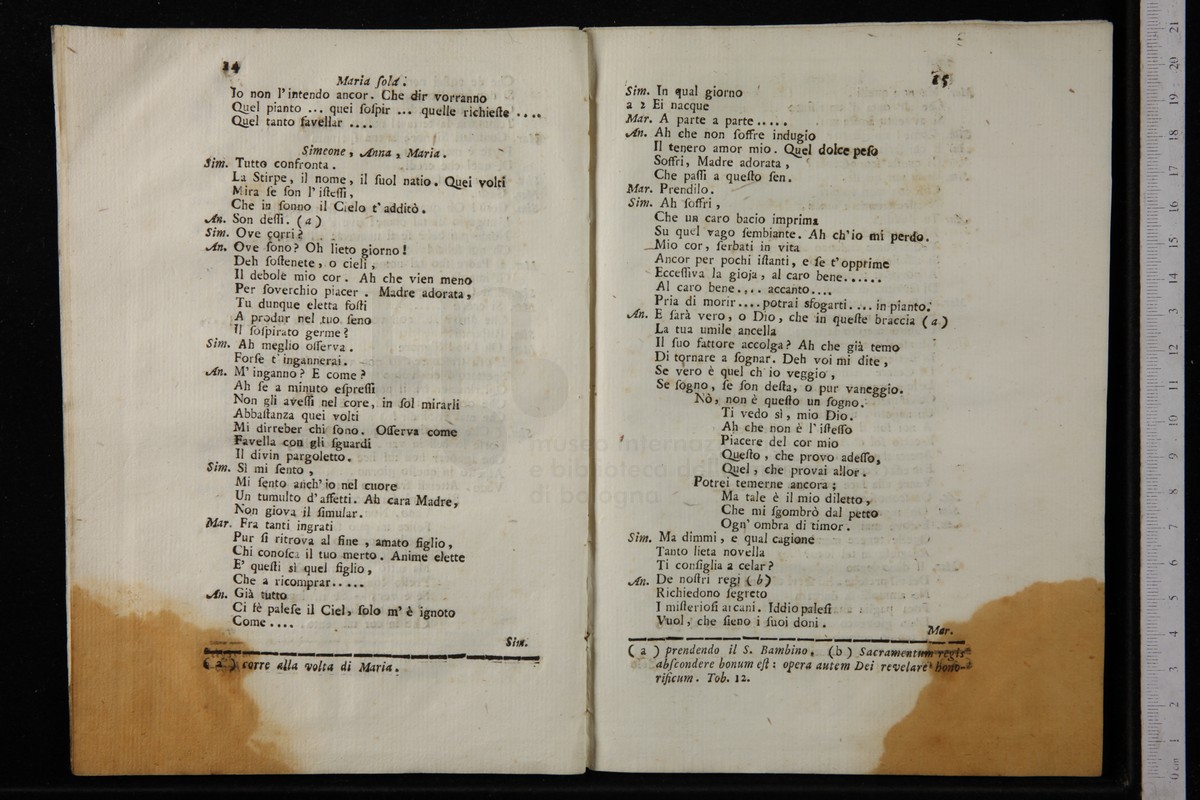 14
Maria ſola.
Io non l'intendo ancor. Che dir vorranno
Quel pianto ... quei ſoſpir ... quelle richieſte ....
Quel tanto favellar ....
Simeone, Anna, Maria.
Sim. Tutto confronta.
La Stirpe, il nome, il ſuol natio. Quei volti
Mira ſe ſon l'iſteſſi,
Che in ſonno il Cielo t'additò.
An. Son deſſi. (a)
Sim. Ove corri?
An. Ove ſono? Oh lieto giorno!
Deh ſoſtenete, o cieli,
Il debole mio cor. Ah che vien meno
Per ſoverchio piacer. Madre adorata,
Tu dunque eletta foſti
A produr nel tuo ſeno
Il ſoſpirato germe?
Sim. Ah meglio oſſerva.
Forſe t'ingannerai.
An. M'inganno? E come?
Ah ſe a minuto eſpreſſi
Non gli aveſſi nel core, in ſol mirarli
Abbaſtanza quei volti
Mi dirreber chi ſono. Oſſerva come
Favella con gli ſguardi
Il divin pargoletto.
Sim. Sì mi ſento,
Mi ſento anch'io nel cuore
Un tumulto d'affetti. Ah cara Madre,
Non giova il ſimular.
Mar. Fra tanti ingrati
Pur ſi ritrova al fine, amato figlio,
Chi conoſca il tuo merto. Anime elette
E' queſti sì quel figlio,
Che a ricomprar.....
An. Già tutto
Ci fè paleſe il Ciel, ſolo m'è ignoto
Come....
Sim.
(a) corre alla volta di Maria.
15
Sim. In qual giorno
a 2 Ei nacque
Mar. A parte a parte.....
An. Ah che non ſoffre indugio
Il tenero amor mio. Quel dolce peſo
Soffri, Madre adorata,
Che paſſi a queſto ſen.
Mar. Prendilo.
Sim. Ah ſoffri,
Che un caro bacio imprima
Su quel vago ſembiante. Ah ch'io mi perdo.
Mio cor, ſerbati in vita
Ancor per pochi iſtanti, e ſe t'opprime
Ecceſſiva la gioja, al caro bene......
Al caro bene.... accanto....
Pria di morir....potrai sfogarti.... in pianto.
An. E ſarà vero, o Dio, che in queſte braccia (a)
La tua umile ancella
Il ſuo fattore accolga? Ah che già temo
Di tornare a ſognar. Deh voi mi dite,
Se vero è quel ch'io veggio,
Se ſogno, ſe ſon deſta, o pur vaneggio.
Nò, non è queſto un ſogno.
Ti vedo sì, mio Dio.
Ah che non è l'iſteſſo
Piacere del cor mio
Queſto, che provo adeſſo,
Quel, che provai allor.
Potrei temerne ancora;
Ma tale è il mio diletto,
Che mi ſgombrò dal petto
Ogn' ombra di timor.
Sim. Ma dimmi, e qual cagione
Tanto lieta novella
Ti conſiglia a celar?
An. De noſtri regi (b)
Richiedono ſegreto
I miſterioſi arcani. Iddio paleſi
Vuol, che ſieno i ſuoi doni.
Mar.
(a) prendendo il S. Bambino. (b) Sacramentum regis
abſcondere bonum eſt: opera autem Dei revelare hono-
rificum. Tob. 12.